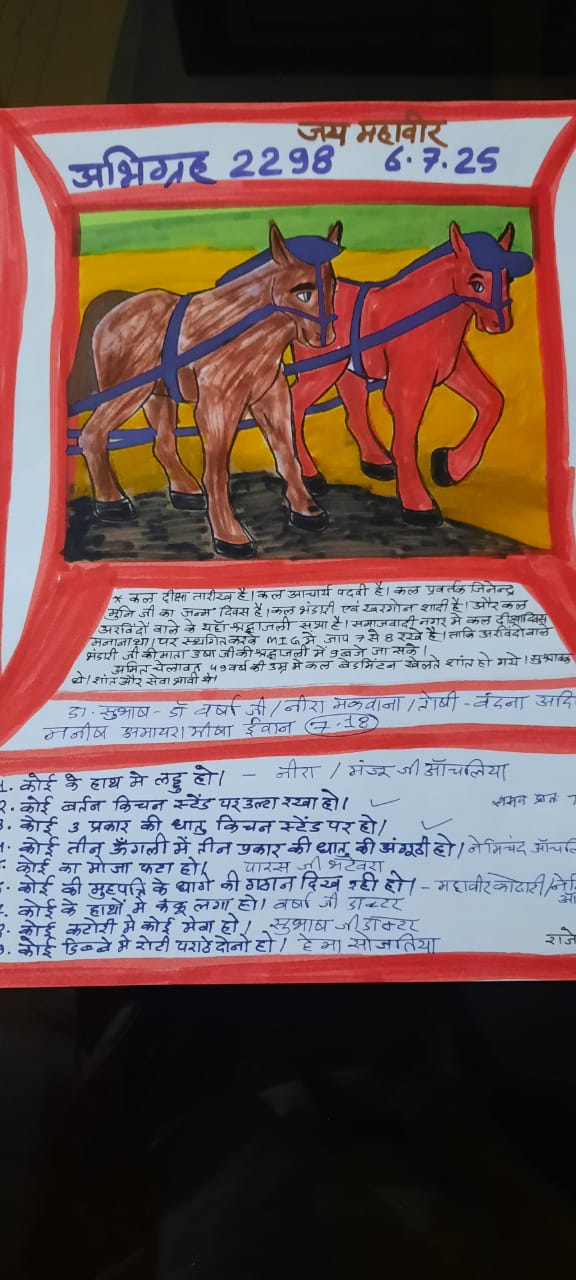 जय महावीर
अभिग्रह 2298 6.7.25
* कल दीक्षा तारीख है। कल आचार्य पदवी है। कल प्रवर्तक जिनेन्द्र
मुनि जी का जन्म दिवस है। कल भंडारी एवं खरगोन शादी है। और कल
अरविंदो वाले के यहाँ श्रद्धांजली सभा है। समाजवादी नगर मे कल दीक्षा दिवस
मनाना था। पर स्थगित करके MIG मे जाप 7 से 8 रखे है। ताकि अरविंदो वाले
भंडारी जी की माता उषा जी की श्रद्धांजली में 9 बजे जा सके।
अमित येलावत 49 वर्ष की उम्र में कल बेडमिंटन खेलते शांत हो गये।
थे। शांत और सेवाभावी थे।
डा. सुभाष - डॉ वर्षा जी / नीरा मकवाना / - वंदना आदि
मनीष अमायरा मीषा ईवान 7-18
1. कोई के हाथ मे लड्डू हो। - नीरा / मंजू जी ऑचलिया
कोई बर्तन किचन स्टेंड पर उल्टा रखा हो। ✓
कोई 3 प्रकार की धातु किचन स्टेंड पर हो। ✓
कोई तीन ऊँगली में तीन प्रकार की धातु की अंगूठी हो। नेमिचंद
कोई का मोजा फटा हो। पारस जी भटेवरा
कोई की मुहपत्ति के धागे की गठान दिख रही हो। - महावीर कोठारी /
कोई के हाथों मे कंकू लगा हो। वर्षा जी डाक्टर
कोई कटोरी मे कोई मेवा हो। सुभाष जी डॉक्टर
कोई डिब्बे मे रोटी पराठे दोनो हो। हेमा सोजतिया
राजे